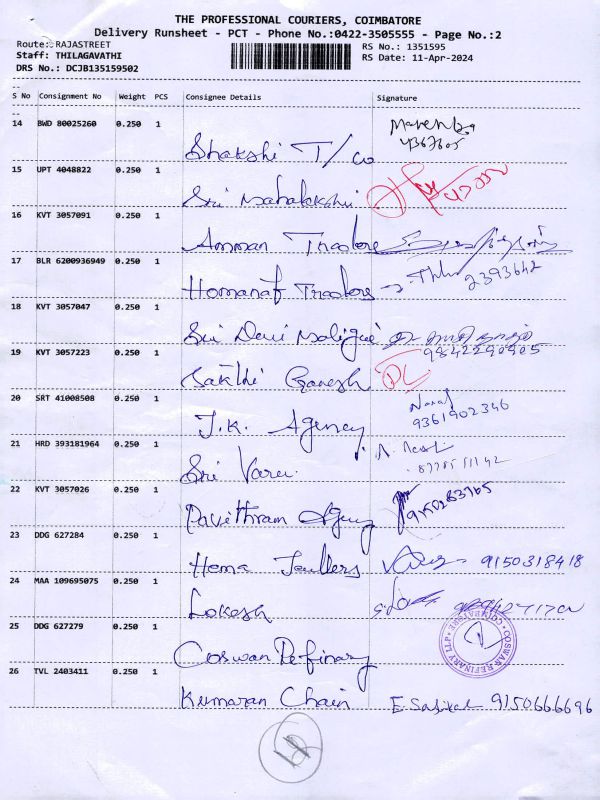 THE PROFESSIONAL COURIERS, COIMBATORE
Delivery Runsheet - PCT - Phone No.:0422-3505555 - Page No.:2
Route: RAJASTREET
Staff: THILAGAVATHI
DRS No.: DCJB135159502
RS No.: 1351595
RS Date: 11-Apr-2024
S No Consignment No Weight PCS Consignee Details Signature
14 BWD 80025260 0.250 1
Shakshi T/co
15 UPT 4048822 0.250 1
Sri Mahalakshmi
16 KVT 3057091 0.250 1
Amman Traders
17 BLR 6200936949 0.250 1
Homanaf Traders 2393642
18 KVT 3057047 0.250 1
Sri Devi Maligai
9842290905
19 KVT 3057223 0.250 1
Sakthi Ganesh
20 SRT 41008508 0.250 1
J.K. Agency 9361902346
21 HRD 393181964 0.250 1
Sri Varu
22 KVT 3057026 0.250 1
Pavithram Agency 9150283765
23 DDG 627284 0.250 1
Hema Jewllers 9150318418
24 MAA 109695075 0.250 1
Lokesh
25 DDG 627279 0.250 1
Coswan Refinary
COSWAN REFINARY LLP
COIMBATORE
26 TVL 2403411 0.250 1
Kumaran Chain E. Sasikal 9150666696